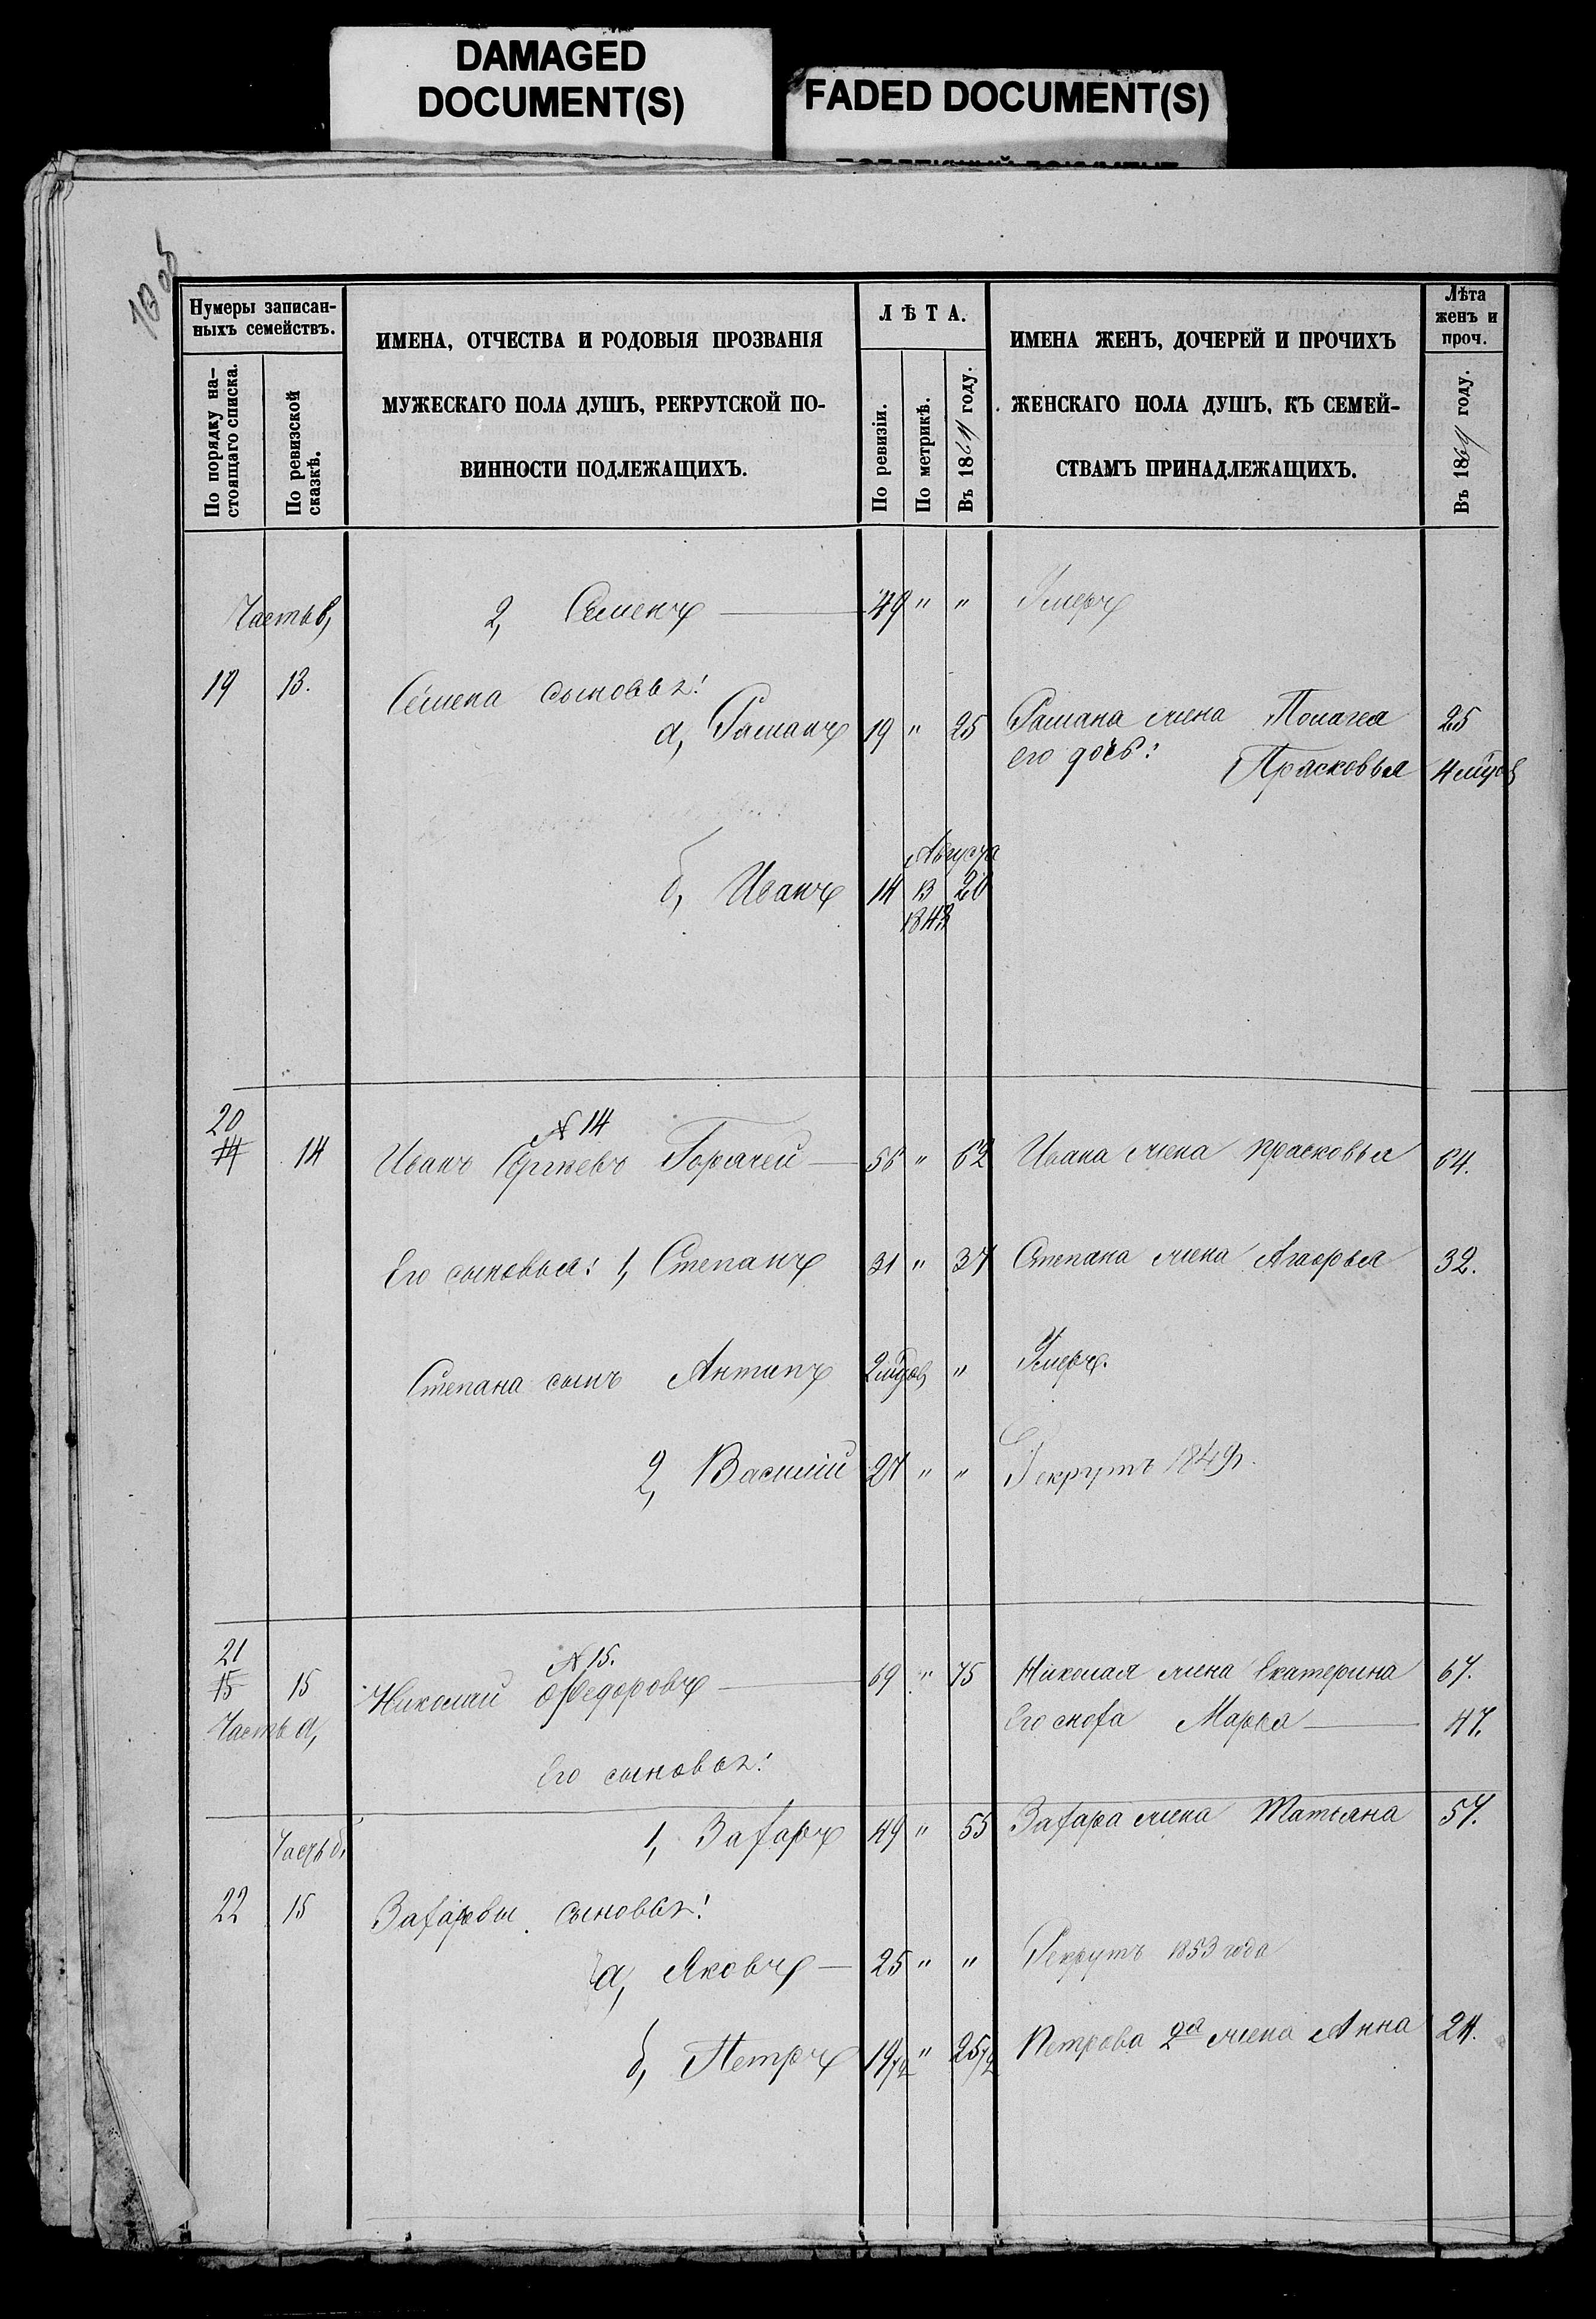 DAMAGED
DOCUMENT(S)
FADED DOCUMENT(S)
Нумеры записан-
ныхъ семействъ.
По порядку на-
стоящаго списка.
По ревизской
сказкѣ.
ИМЕНА, ОТЧЕСТВА И РОДОВЫЯ ПРОЗВАНІЯ
МУЖЕСКАГО ПОЛА ДУШЪ, РЕКРУТСКОЙ ПО-
ВИННОСТИ ПОДЛЕЖАЩИХЪ.
ЛѢТА.
По ревизіи.
По метрикѣ.
Въ 1864 году.
ИМЕНА ЖЕНЪ, ДОЧЕРЕЙ И ПРОЧИХЪ
ЖЕНСКАГО ПОЛА ДУШЪ, КЪ СЕМЕЙ-
СТВАМЪ ПРИНАДЛЕЖАЩИХЪ.
Лѣта
женъ и
проч.
Въ 1864 году.
Часть в, 2, Семенъ 49 " " Умеръ
19 13. Семена сыновья:
а, Раманъ 19 " 25 Рамана жена Полагея 25
его дочь: Прасковья 4 мцов
Августа
б, Иванъ 14 13 20
1843
20
14 14 № 14
Иванъ Сергѣевъ Горячей 56 " 62 Ивана жена Прасковья 64.
Его сыновья: 1, Степанъ 31 " 37 Степана жена Агафья 32.
Степана сынъ Антипъ 2 мцов " Умеръ.
2, Василій 27 " " Рекрутъ 1849 г.
21
15 15 № 15.
Николай Федоровъ 69 " 75 Николая жена Екатерина 67.
Часть а, Его сноха Марья 47.
Его сыновья:
Часть б, 1, Захаръ 49 " 55 Захара жена Татьяна 57.
22 15 Захаровы сыновья:
а, Яковъ 25 " " Рекрутъ 1853 года
б, Петръ 19 1/2 " 25 1/2 Петрова 2я жена Анна 24.